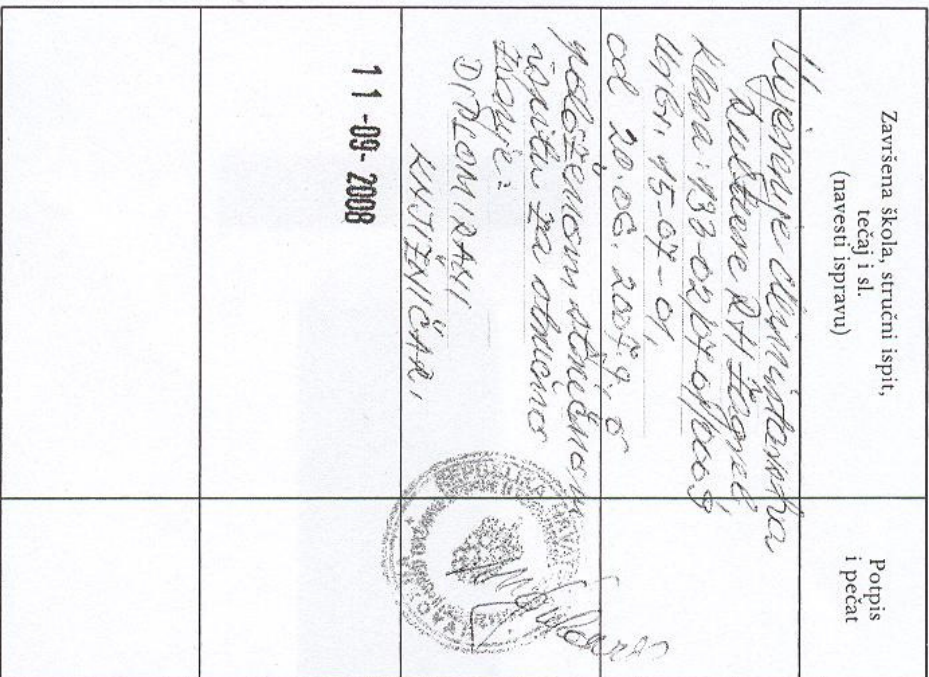 Završena škola, stručni ispit,
tečaj i sl.
(navesti ispravu)
Potpis
i pečat
Uvjerenje Ministarstva
kulture RH Zagreb,
Klasa: 133-02/07-01/0009
Urbr. 15-07-01,
od 20.06.2007.g. o
položenom stručnom
ispitu za stručno
zvanje:
DIPLOMIRANI
KNJIŽNIČAR,
11-09-2008
REPUBLIKA HRVATSKA